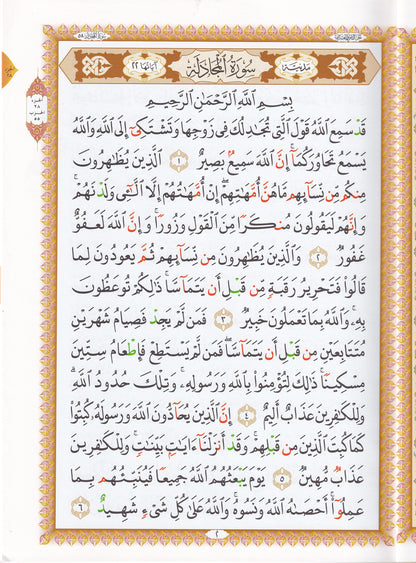 سُورَةُ المُجَادلَة ٥٨
سُورَةُ المُجَادلَة
مَدنيَّة
آيَاتُهَا ٢٢
الجزء
٢٨
الحزب
٥٥
بِسْمِ اللَّهِ الرَّحْمَٰنِ الرَّحِيمِ
قَدْ سَمِعَ اللَّهُ قَوْلَ الَّتِي تُجَادِلُكَ فِي زَوْجِهَا وَتَشْتَكِي إِلَى اللَّهِ وَاللَّهُ
يَسْمَعُ تَحَاوُرَكُمَا إِنَّ اللَّهَ سَمِيعٌ بَصِيرٌ ١ الَّذِينَ يُظَاهِرُونَ
مِنكُم مِّن نِّسَائِهِم مَّا هُنَّ أُمَّهَاتِهِمْ إِنْ أُمَّهَاتُهُمْ إِلَّا اللَّائِي وَلَدْنَهُمْ
وَإِنَّهُمْ لَيَقُولُونَ مُنكَرًا مِّنَ الْقَوْلِ وَزُورًا وَإِنَّ اللَّهَ لَعَفُوٌّ
غَفُورٌ ٢ وَالَّذِينَ يُظَاهِرُونَ مِن نِّسَائِهِمْ ثُمَّ يَعُودُونَ لِمَا
قَالُوا فَتَحْرِيرُ رَقَبَةٍ مِّن قَبْلِ أَن يَتَمَاسَّا ذَٰلِكُمْ تُوعَظُونَ
بِهِ وَاللَّهُ بِمَا تَعْمَلُونَ خَبِيرٌ ٣ فَمَن لَّمْ يَجِدْ فَصِيَامُ شَهْرَيْنِ
مُتَتَابِعَيْنِ مِن قَبْلِ أَن يَتَمَاسَّا فَمَن لَّمْ يَسْتَطِعْ فَإِطْعَامُ سِتِّينَ
مِسْكِينًا ذَٰلِكَ لِتُؤْمِنُوا بِاللَّهِ وَرَسُولِهِ وَتِلْكَ حُدُودُ اللَّهِ
وَلِلْكَافِرِينَ عَذَابٌ أَلِيمٌ ٤ إِنَّ الَّذِينَ يُحَادُّونَ اللَّهَ وَرَسُولَهُ كُبِتُوا
كَمَا كُبِتَ الَّذِينَ مِن قَبْلِهِمْ وَقَدْ أَنزَلْنَا آيَاتٍ بَيِّنَاتٍ وَلِلْكَافِرِينَ
عَذَابٌ مُّهِينٌ ٥ يَوْمَ يَبْعَثُهُمُ اللَّهُ جَمِيعًا فَيُنَبِّئُهُم بِمَا
عَمِلُوا أَحْصَاهُ اللَّهُ وَنَسُوهُ وَاللَّهُ عَلَىٰ كُلِّ شَيْءٍ شَهِيدٌ ٦
٢